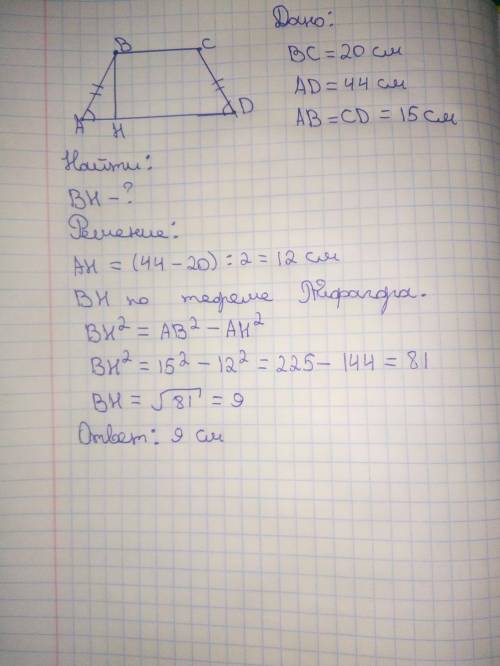 Дано:
B C
BC = 20 см
AD = 44 см
A H D
AB = CD = 15 см
Найти:
BH - ?
Решение:
AH = (44 - 20) : 2 = 12 см
BH по теореме Пифагора.
BH² = AB² - AH²
BH² = 15² - 12² = 225 - 144 = 81
BH = √81 = 9
Ответ: 9 см